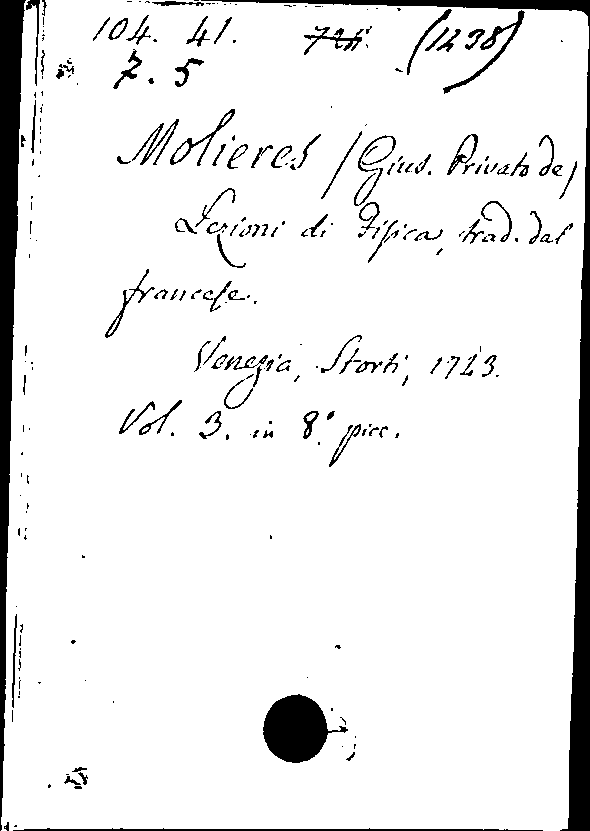 104. 41. (1238)
7. 5
Molieres / Gius. Privato de /
Lezioni di Fisica, trad. dal
francese.
Venezia, Storti, 1743.
Vol. 3. in 8.° picc.